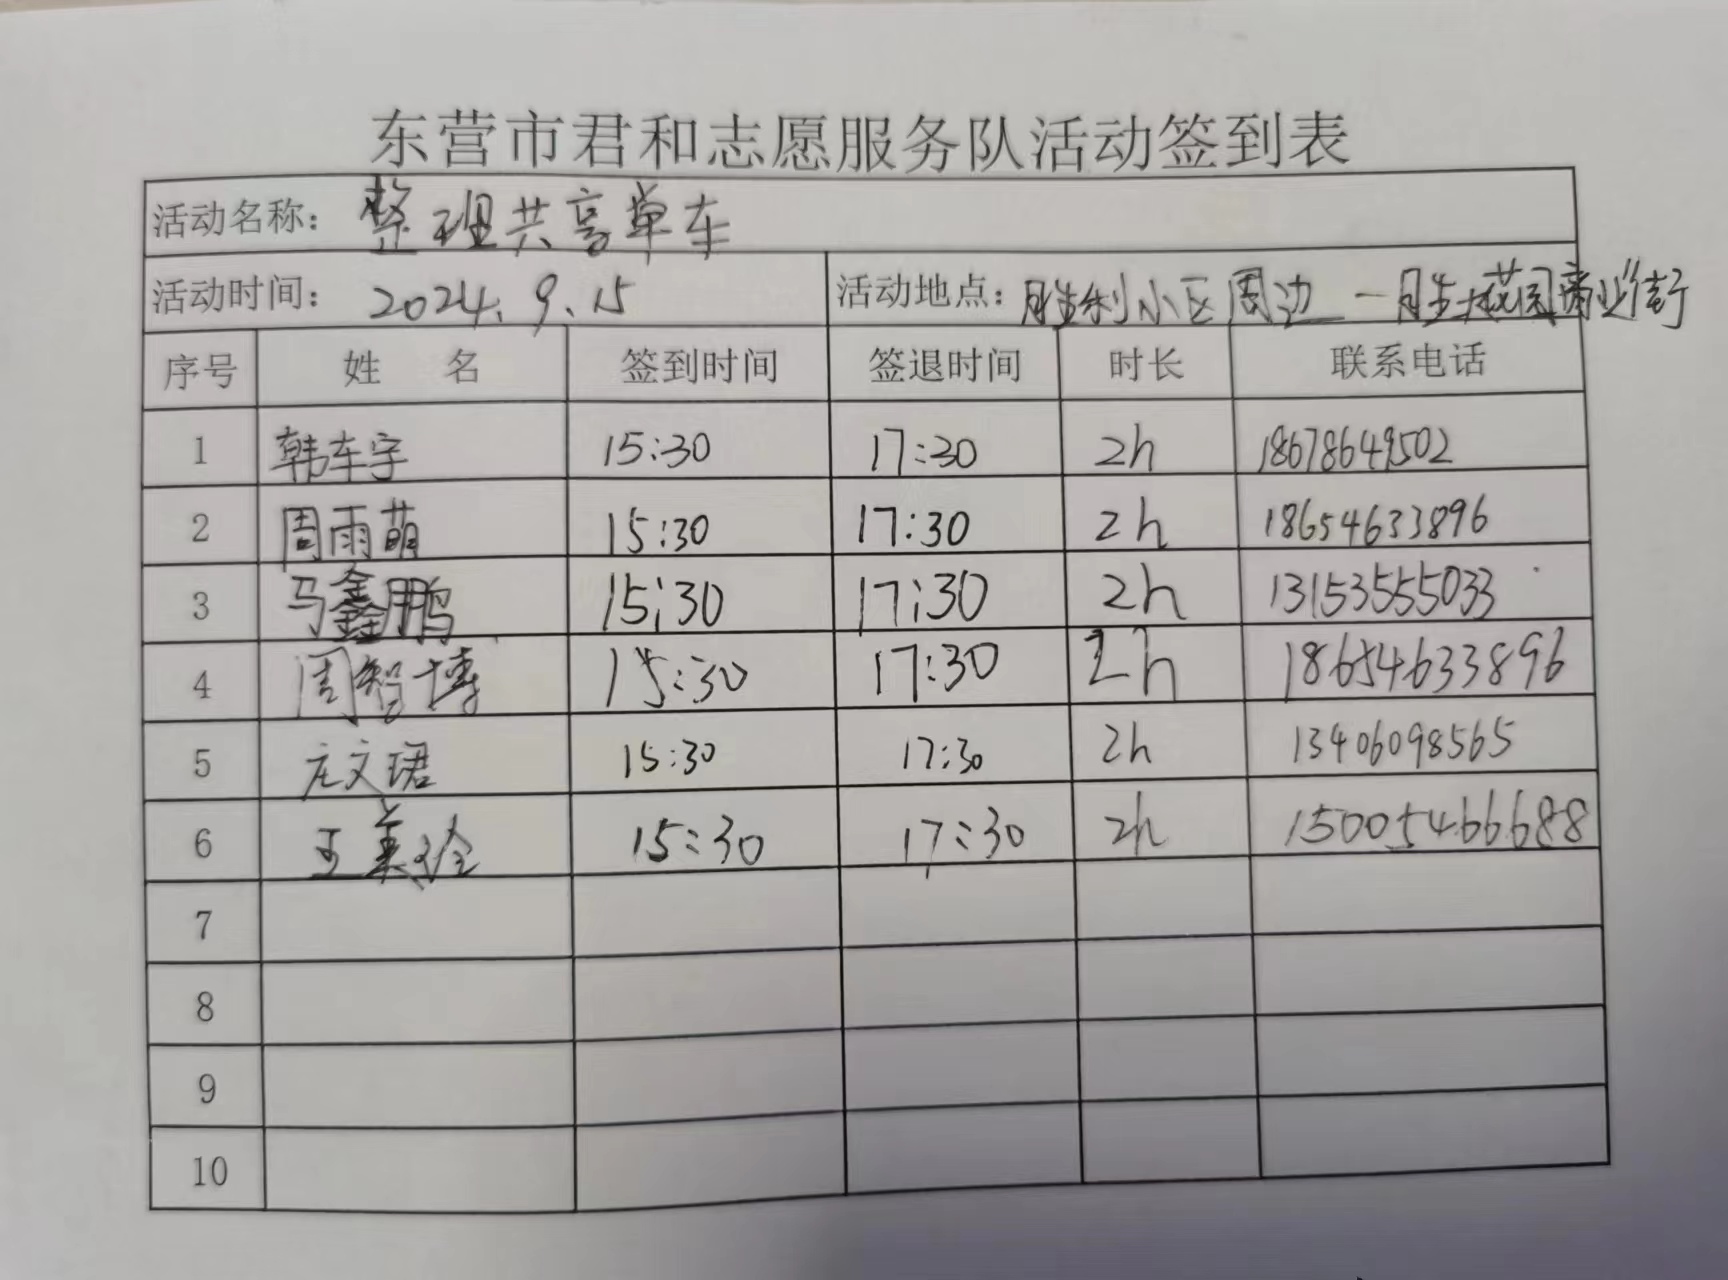 东营市君和志愿服务队活动签到表
活动名称： 整理共享单车
活动时间： 2024.9.15 活动地点：胜利小区周边一胜大花园商业街
序号 姓 名 签到时间 签退时间 时长 联系电话
1 韩车宇 15:30 17:30 2h 18678649502
2 周雨萌 15:30 17:30 2h 18654633896
3 马鑫鹏 15:30 17:30 2h 13153555033
4 周智博 15:30 17:30 2h 18654633896
5 庄文珺 15:30 17:30 2h 13406098565
6 王美玲 15:30 17:30 2h 15005466688
7
8
9
10